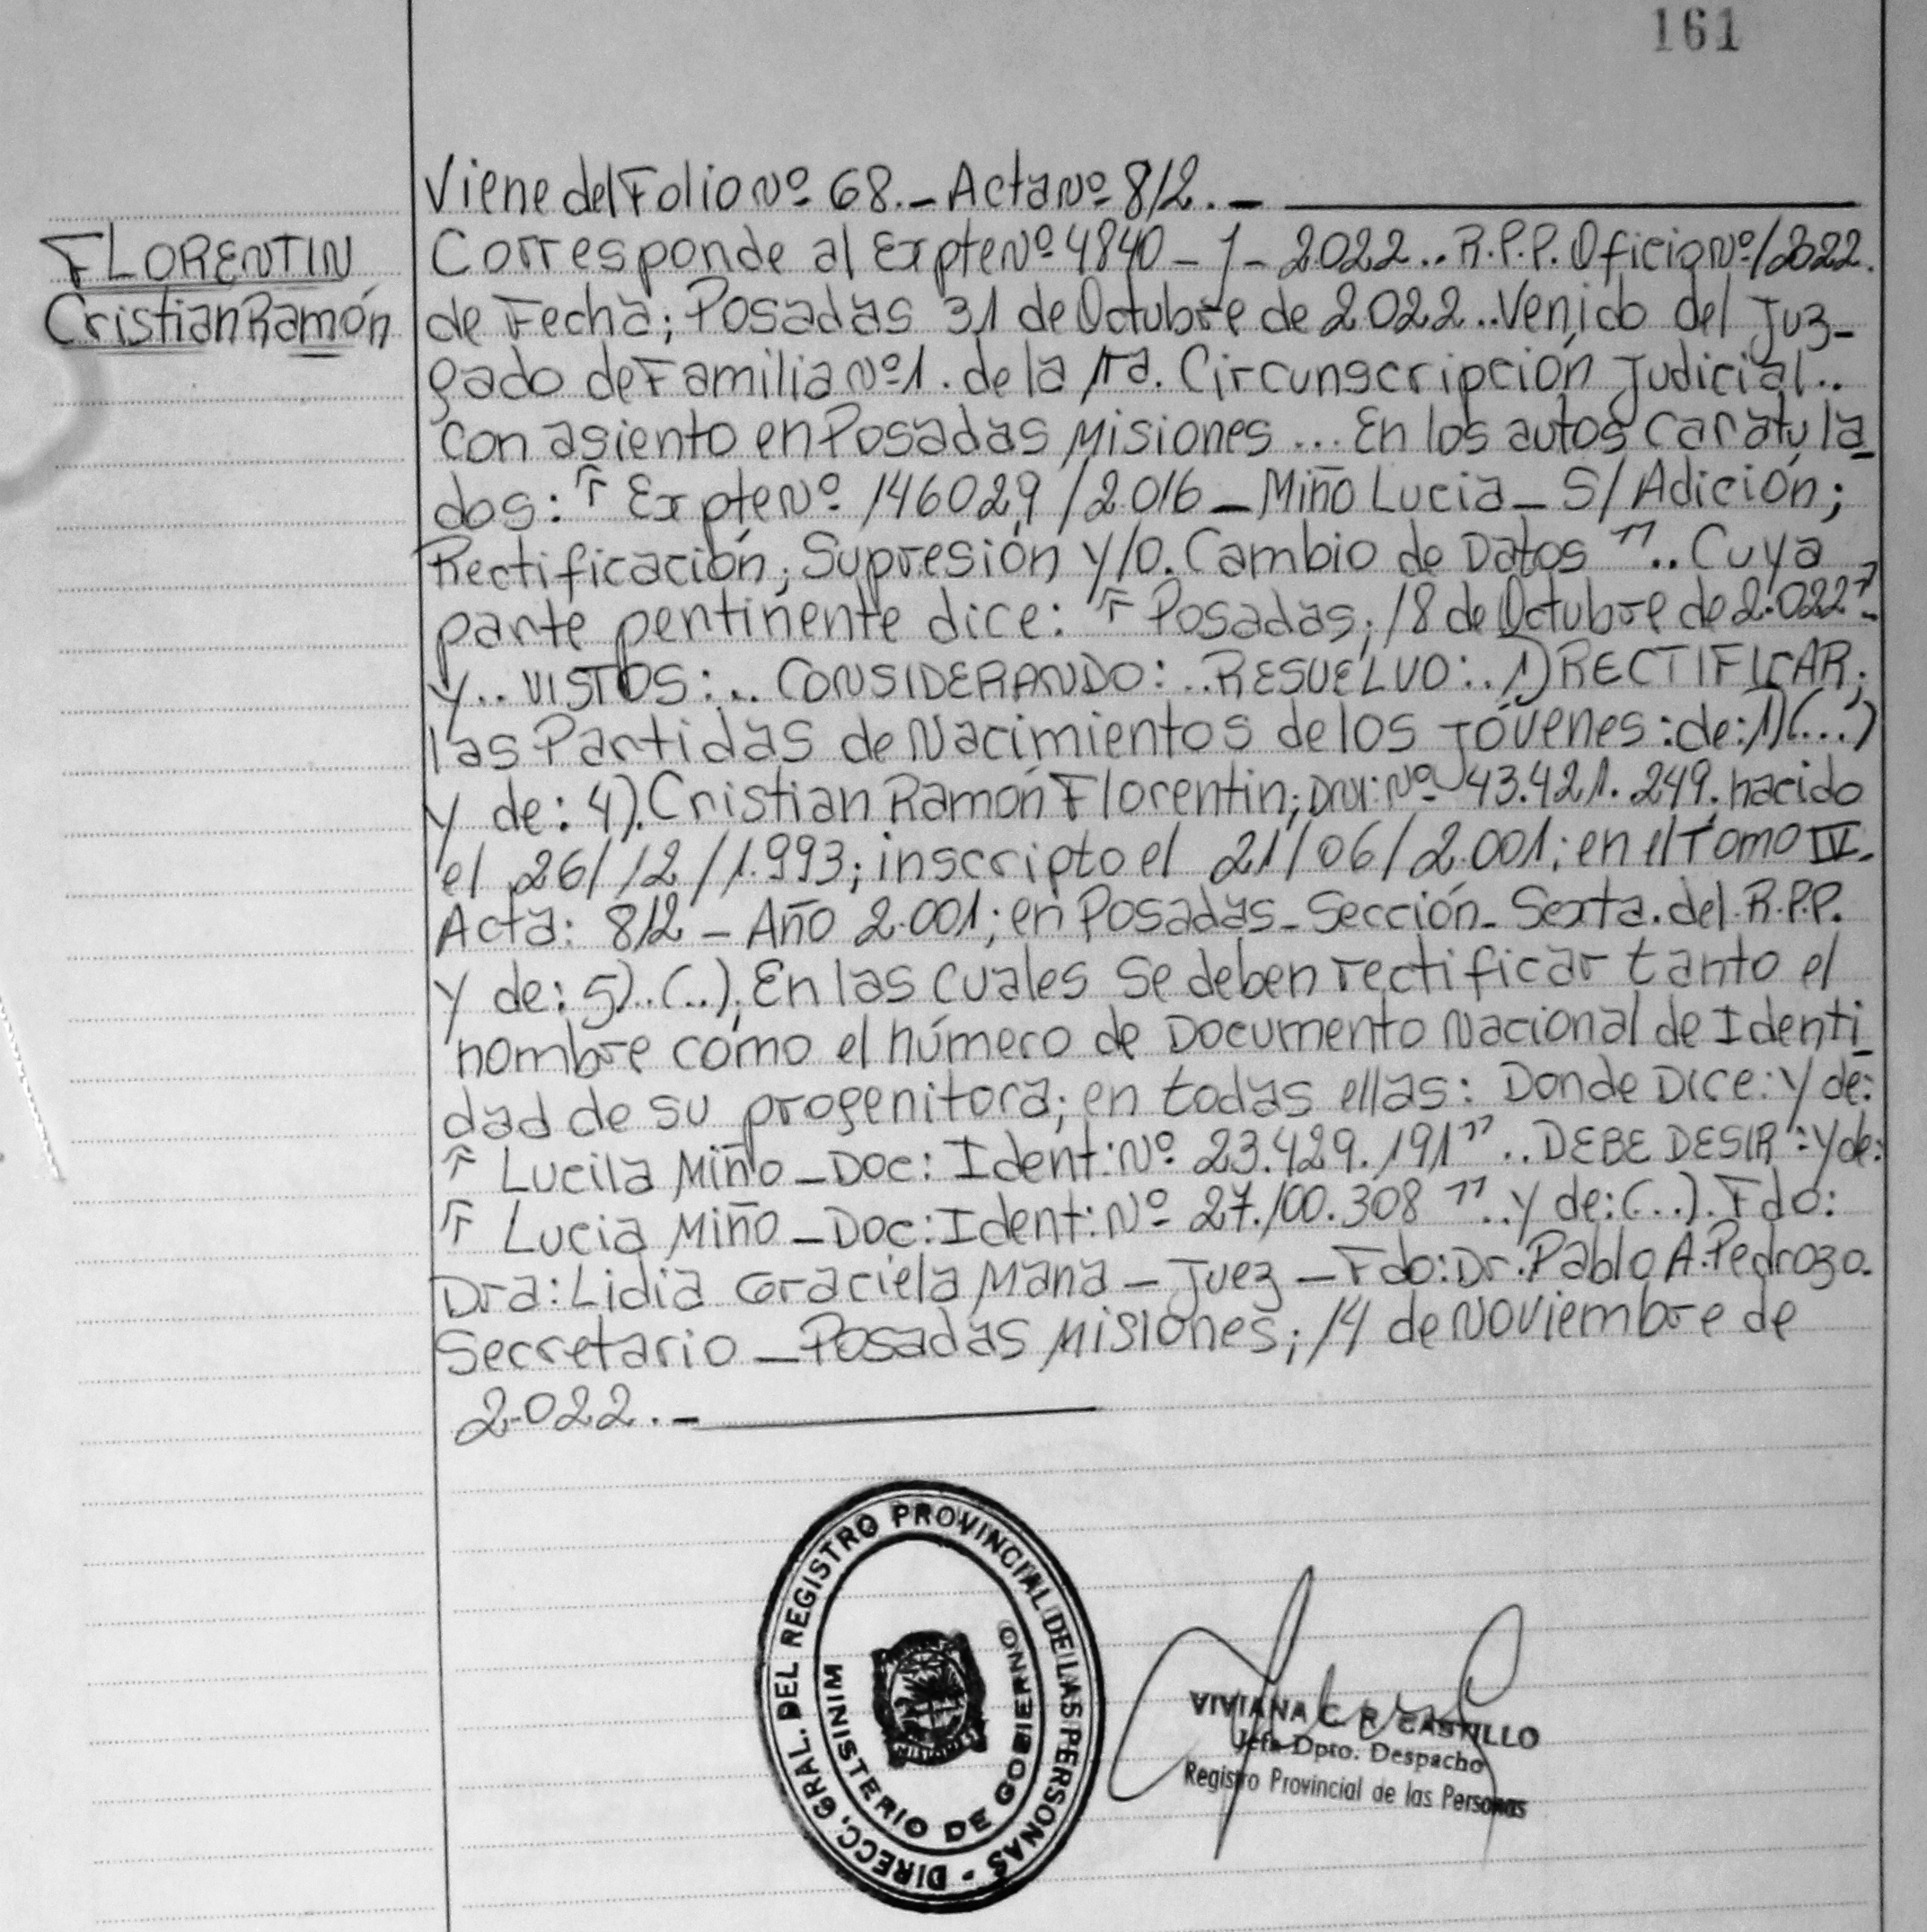 161
Viene del Folio Nº 68.- Acta Nº 812.-
FLORENTIN
Cristian Ramón
Corresponde al Expte Nº 4840-1-2022.. R.P.P. Oficio Nº/2022.
de Fecha; Posadas 31 de Octubre de 2022.. Venido del Juz-
gado de Familia Nº1. de la 1ra. Circunscripción Judicial..
con asiento en Posadas Misiones... En los autos caratula
dos: "Expte Nº 146029/2016 - Miño Lucia - S/Adición;
Rectificación; Supresión y/o. Cambio de Datos".. Cuya
parte pentinente dice: "Posadas; 18 de Octubre de 2.022"..
y.. VISTOS:.. CONSIDERANDO:..RESUELVO:.. 1) RECTIFICAR;
las Partidas de Nacimientos de los Jóvenes: de: 1)(...)
y de: 4). Cristian Ramón Florentin; DNI: Nº 43.421.249. nacido
el 26/12/1.993; inscripto el 21/06/2.001; en el Tomo IV.
Acta: 812 - Año 2.001; en Posadas - Sección - Sexta. del R.P.P.
y de: 5)..(..). En las cuales se deben rectificar tanto el
nombre como el número de Documento Nacional de Identi
dad de su progenitora; en todas ellas: Donde Dice: y de:
"Lucila Miño - Doc: Ident: Nº 23.429.191".. DEBE DESIR: y de:
"Lucia Miño - Doc: Ident: Nº 27.100.308".. y de: (..). Fdo:
Dra: Lidia Graciela Mana - Juez - Fdo: Dr. Pablo A. Pedrozo.
Secretario - Posadas Misiones; 14 de Noviembre de
2.022.-
DIRECC. GRAL. DEL REGISTRO PROVINCIAL DE LAS PERSONAS -
MINISTERIO DE GOBIERNO
MISIONES
VIVIANA C. R. CASTILLO
Jefa Dpto. Despacho
Registro Provincial de las Personas